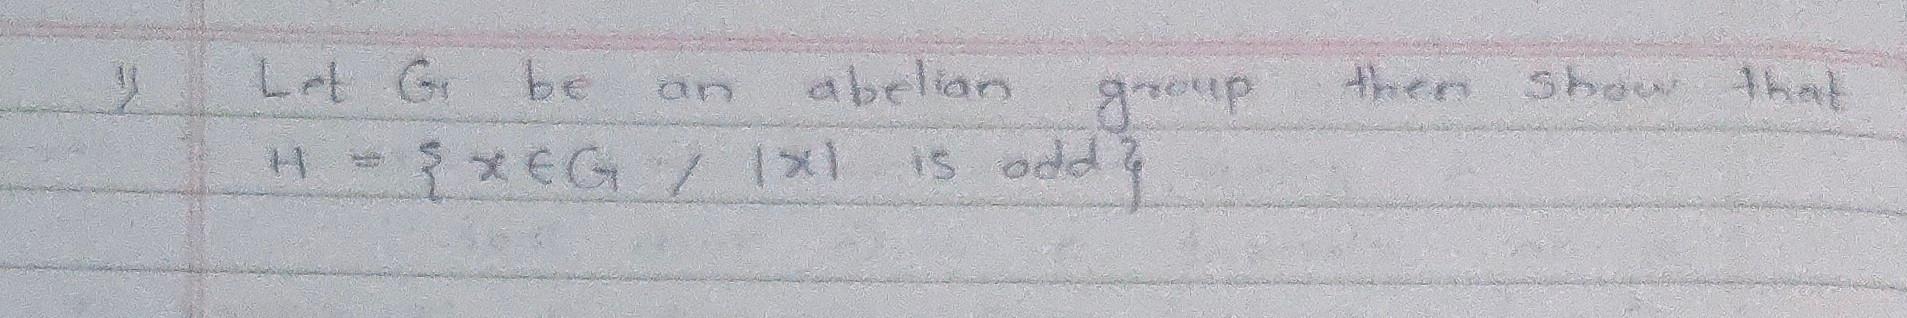 1) Let G be an abelian group then show that
H = { x ∈ G / |x| is odd }